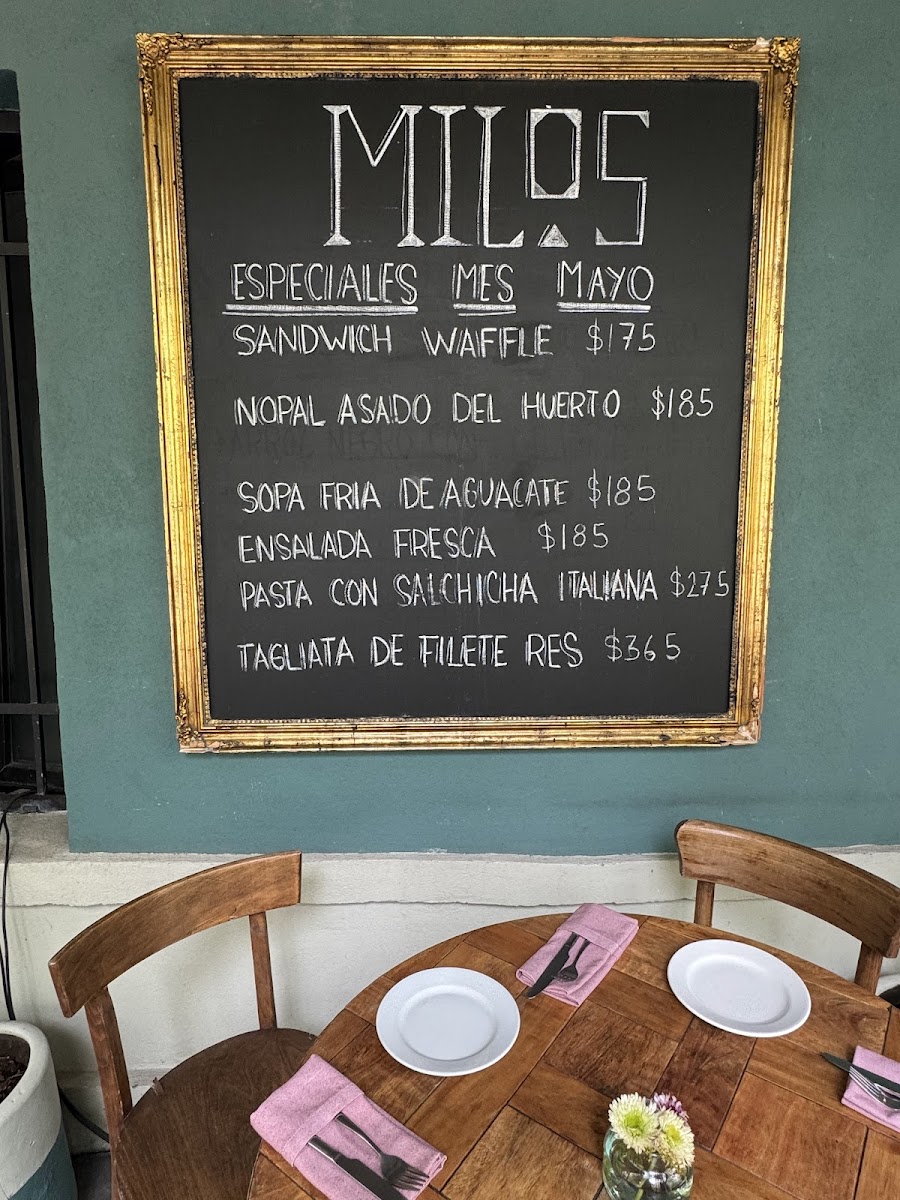 MILOS
ESPECIALES MES MAYO
SANDWICH WAFFLE $175
NOPAL ASADO DEL HUERTO $185
SOPA FRIA DE AGUACATE $185
ENSALADA FRESCA $185
PASTA CON SALCHICHA ITALIANA $275
TAGLIATA DE FILETE RES $365